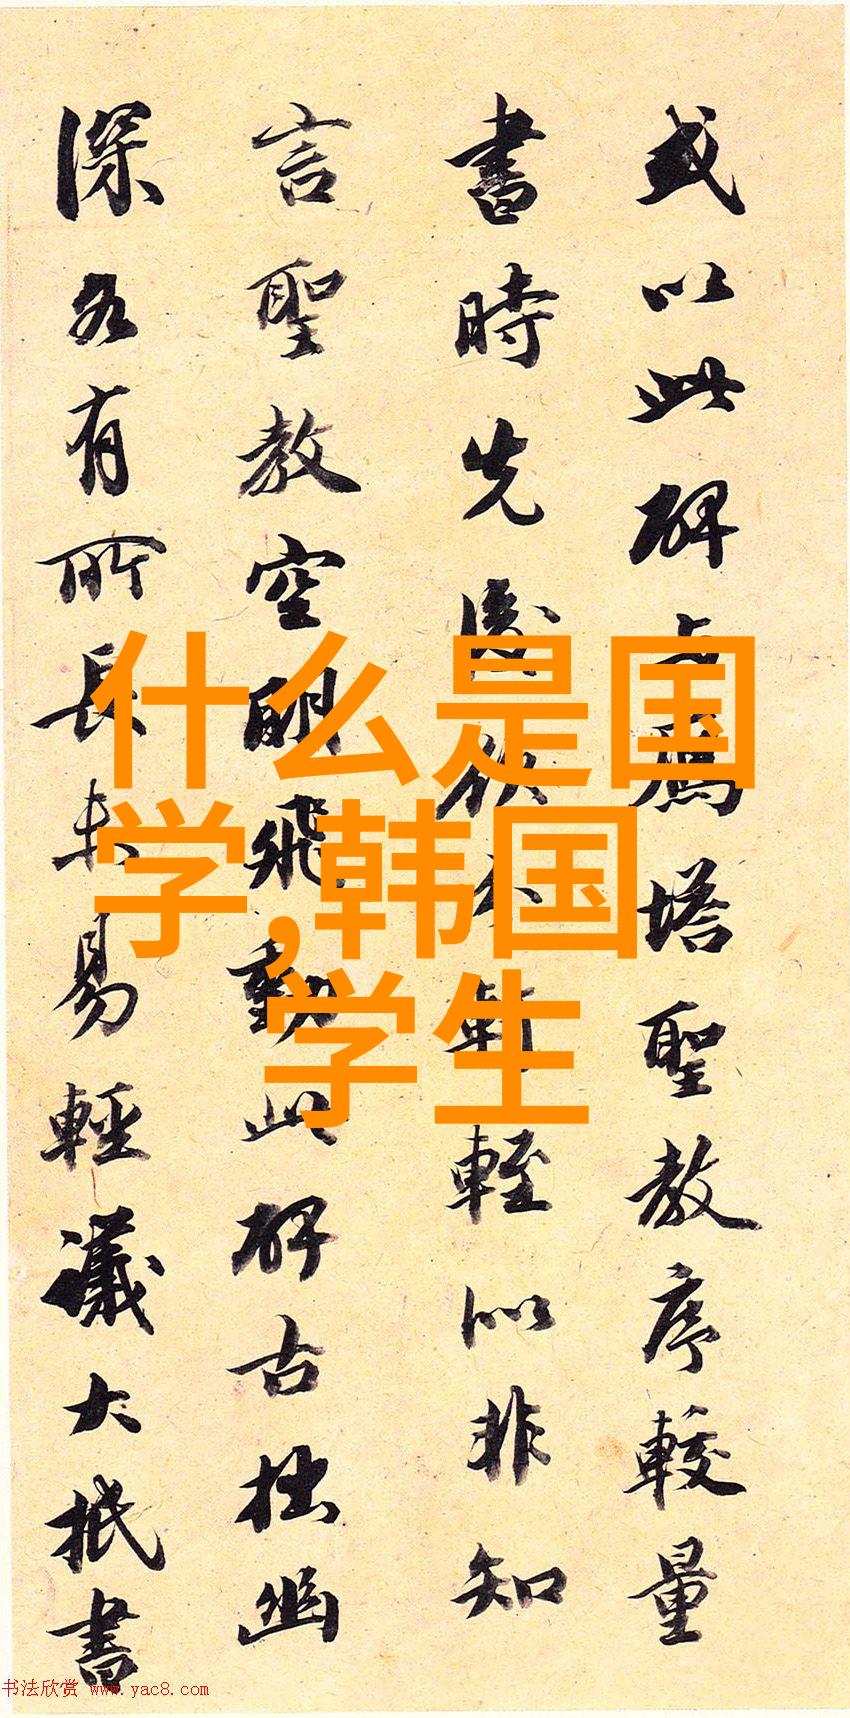 或以此碑与塔聖教序較量
書時先後欲分軒輊似非知
言聖教空朙飛動此碑古拙幽
深各有所長未易輕議大抵書
什么是国
学,韩国
学生
书法欣赏 www.yac8.com